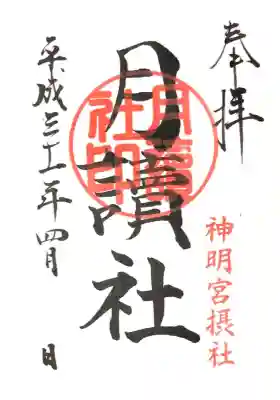 奉拝
神明宮摂社
月讀社
月讀社印
平成三十一年四月　日